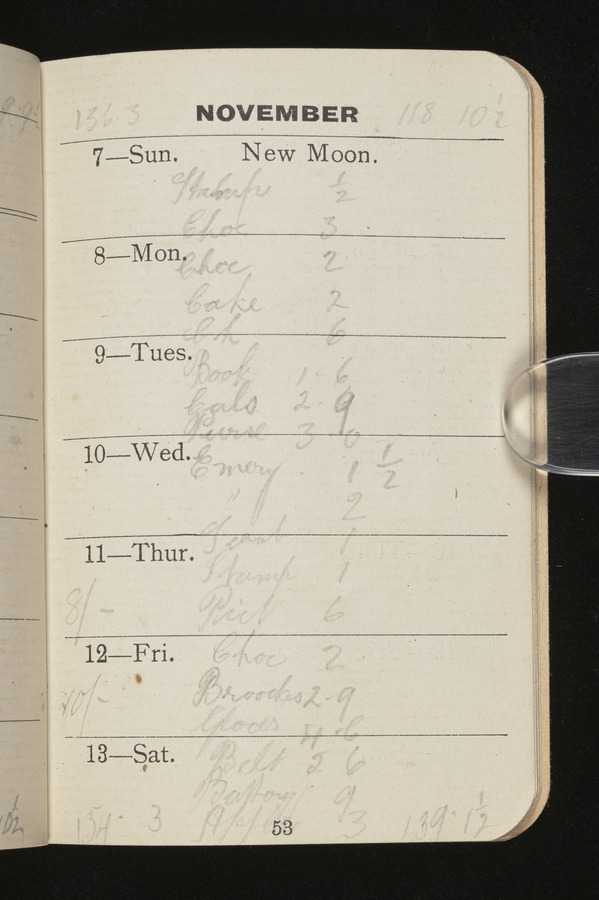 136.3 NOVEMBER 118 10½
7—Sun. New Moon.
Stamp ½
Choc 3
8—Mon.
Choc 2
Cake 2
Ch 6
9—Tues.
Book 1. 6
2. 9
Purse 3. 0
10—Wed.
Emery. 1 ½
" 2
1
11—Thur.
Stamp 1
8/-
Pict 6
12—Fri. Choc 2
10/- Broocks 2. 9
Gloves 6
13—Sat.
Belt 2 6
9
134. 3 3 139. 1½
53